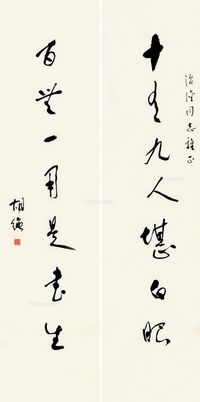 同志雅正
十有九人堪白眼
百無一用是書生
胡绳